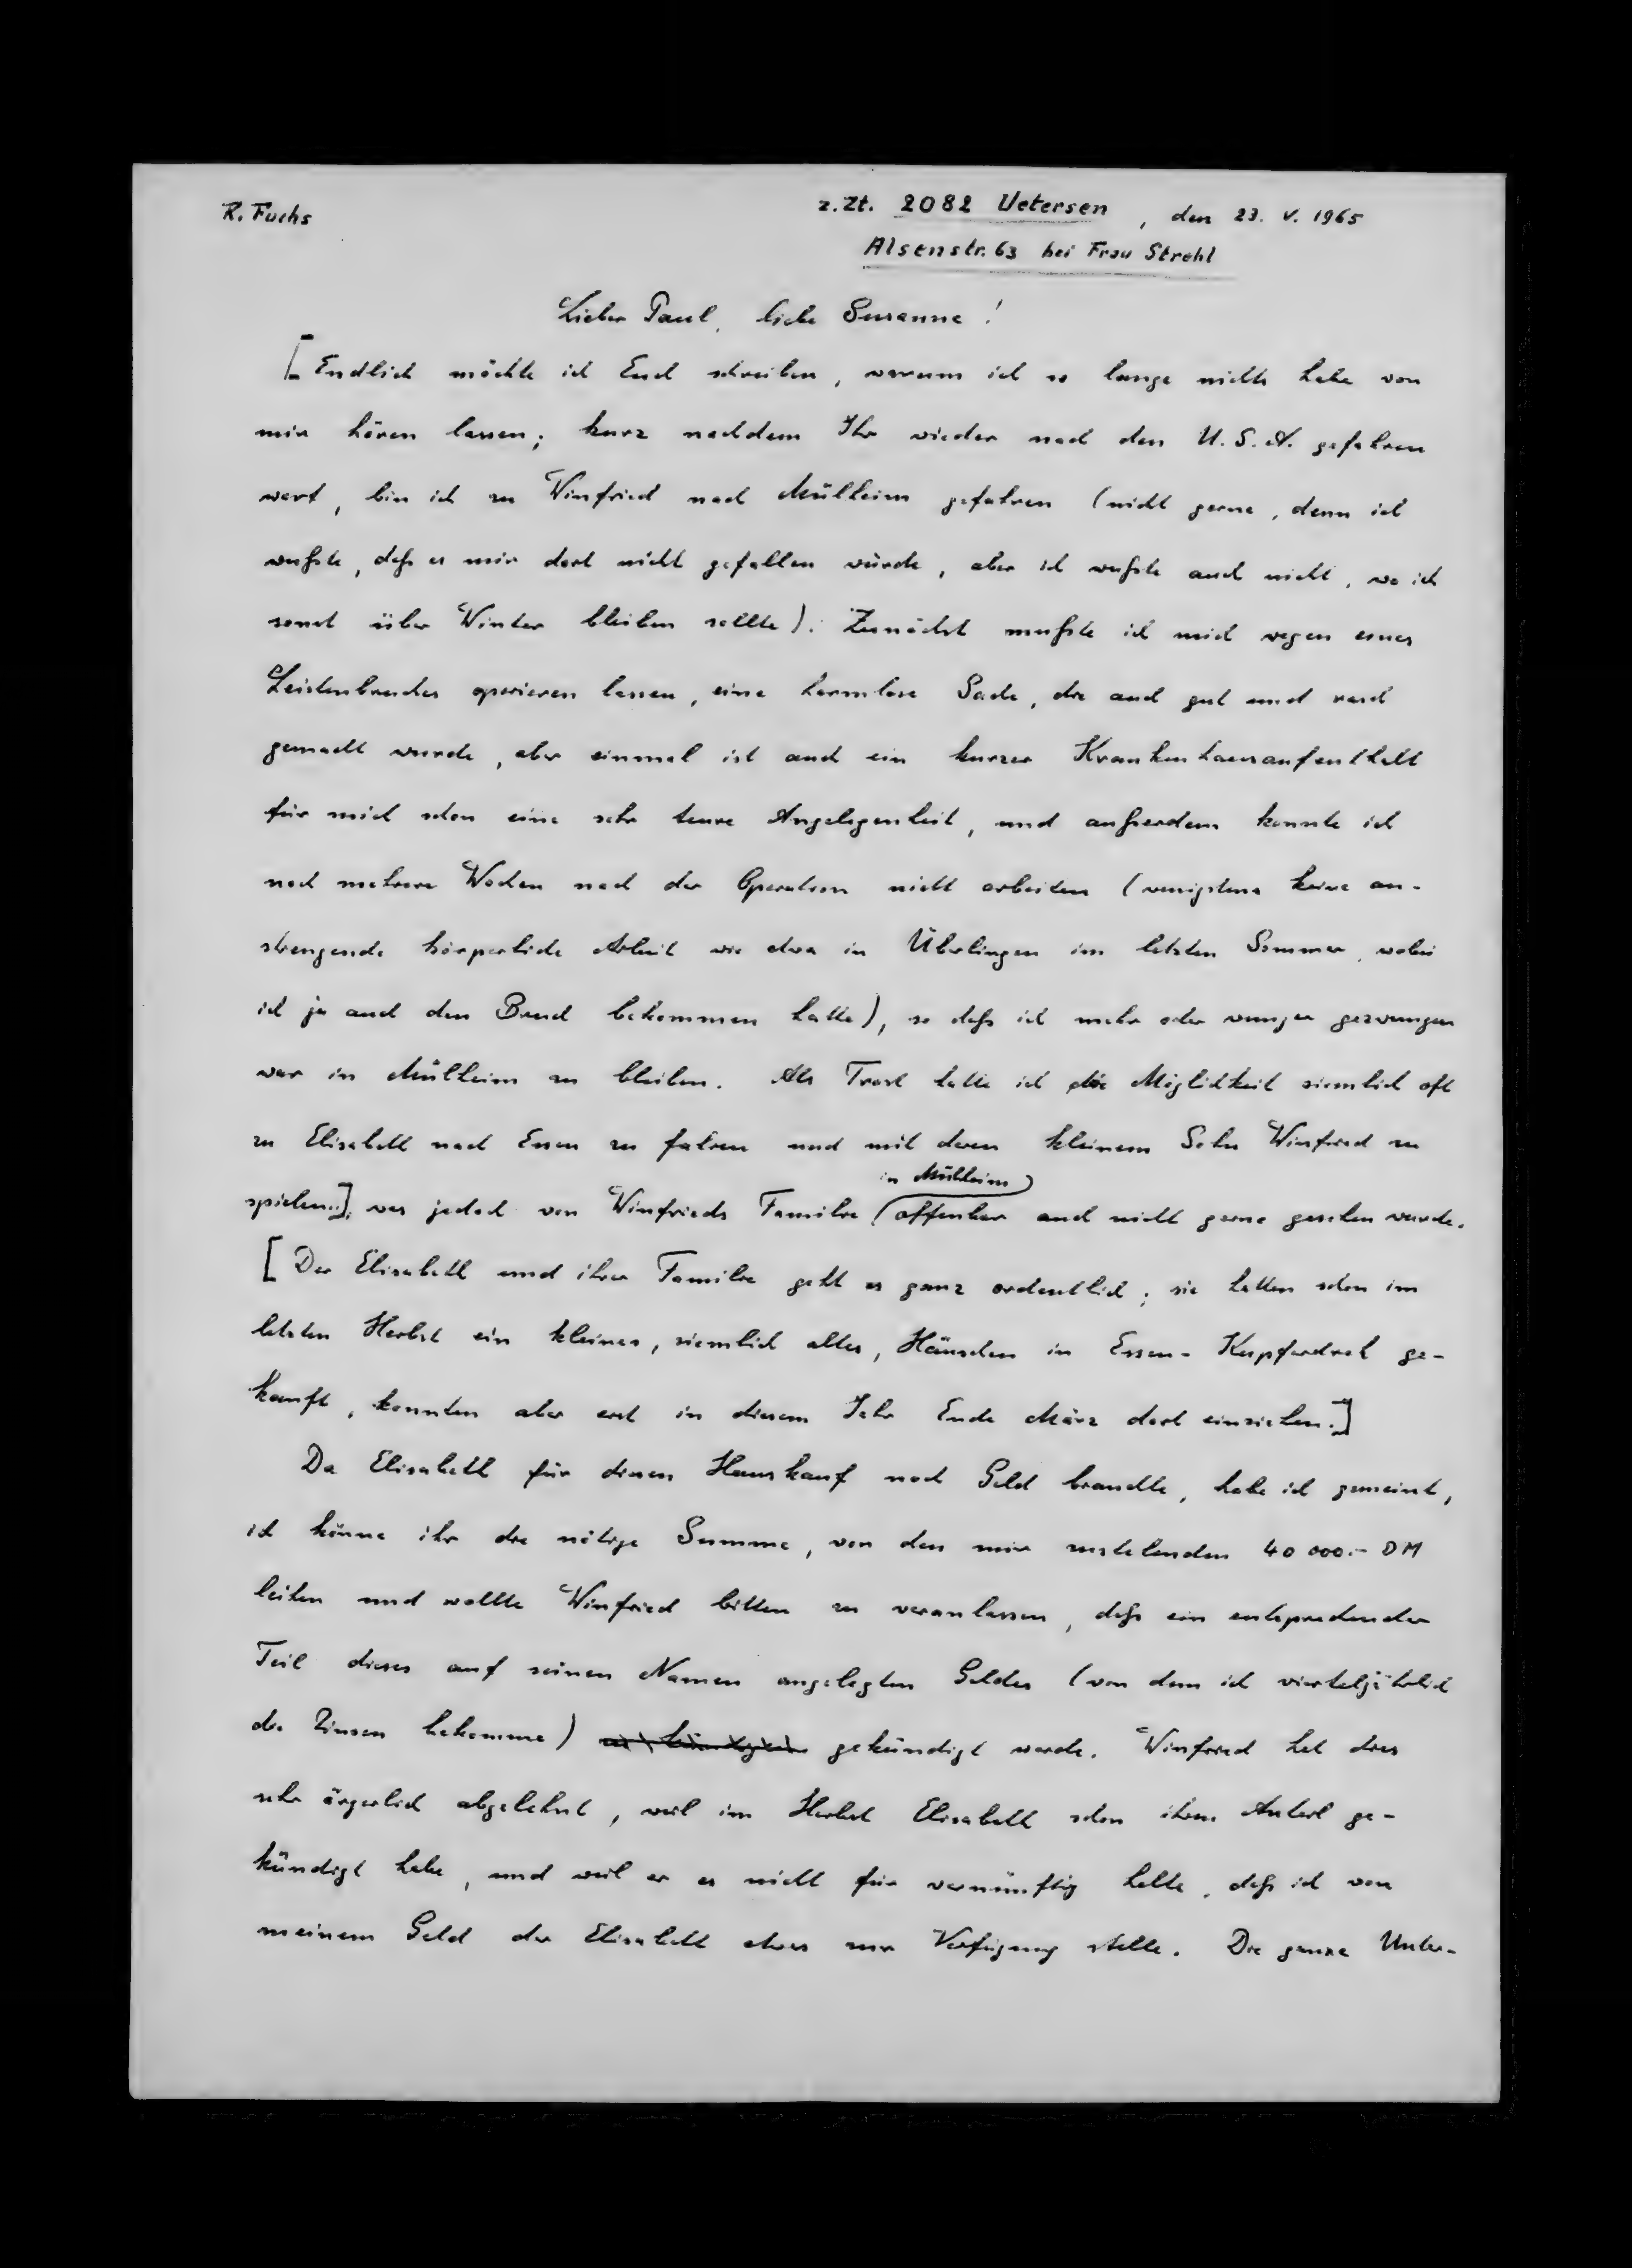 R. Fuchs
z. Zt. 2082 Uetersen, den 23. V. 1965
Alsenstr. 63 bei Frau Strehl
Lieber Paul, liebe Susanne!
[Endlich möchte ich Euch schreiben, warum ich so lange nichts habe von
mir hören lassen; kurz nachdem Ihr wieder nach den U.S.A. gefahren
wart, bin ich zu Winfried nach Mülheim gefahren (nicht gerne, denn ich
wußte, daß es mir dort nicht gefallen würde, aber ich wußte auch nicht, wo ich
sonst über Winter bleiben sollte). Zunächst mußte ich mich wegen eines
Leistenbruches operieren lassen, eine harmlose Sache, die auch gut und rasch
gemacht wurde, aber einmal ist auch ein kurzer Krankenhausaufenthalt
für mich schon eine sehr teure Angelegenheit, und außerdem konnte ich
noch mehrere Wochen nach der Operation nicht arbeiten (wenigstens keine an-
strengende körperliche Arbeit wie etwa in Überlingen im letzten Sommer, wobei
ich ja auch den Bruch bekommen hatte), so daß ich mehr oder weniger gezwungen
war in Mülheim zu bleiben. Als Trost hatte ich die Möglichkeit ziemlich oft
zu Elisabeth nach Essen zu fahren und mit deren kleinem Sohn Winfried zu
in Mülheim)
spielen.]; was jedoch von Winfrieds Familie (offenbar auch nicht gerne gesehen wurde.
[Der Elisabeth und ihrer Familie geht es ganz ordentlich; sie hatten schon im
letzten Herbst ein kleines, ziemlich altes, Häuschen in Essen-Kupferdreh ge-
kauft, konnten aber erst in diesem Jahr Ende März dort einziehen.]
Da Elisabeth für diesen Hauskauf noch Geld brauchte, habe ich gemeint,
ich könne ihr die nötige Summe, von den mir zustehenden 40 000.- DM
leihen und wollte Winfried bitten zu veranlassen, daß ein entsprechender
Teil dieses auf seinen Namen angelegten Geldes (von dem ich vierteljährlich
die Zinsen bekomme) gekündigt werde. Winfried hat dies
sehr ärgerlich abgelehnt, weil im Herbst Elisabeth schon ihren Anteil ge-
kündigt habe, und weil er es nicht für vernünftig halte, daß ich von
meinem Geld der Elisabeth etwas zur Verfügung stelle. Die ganze Unter-